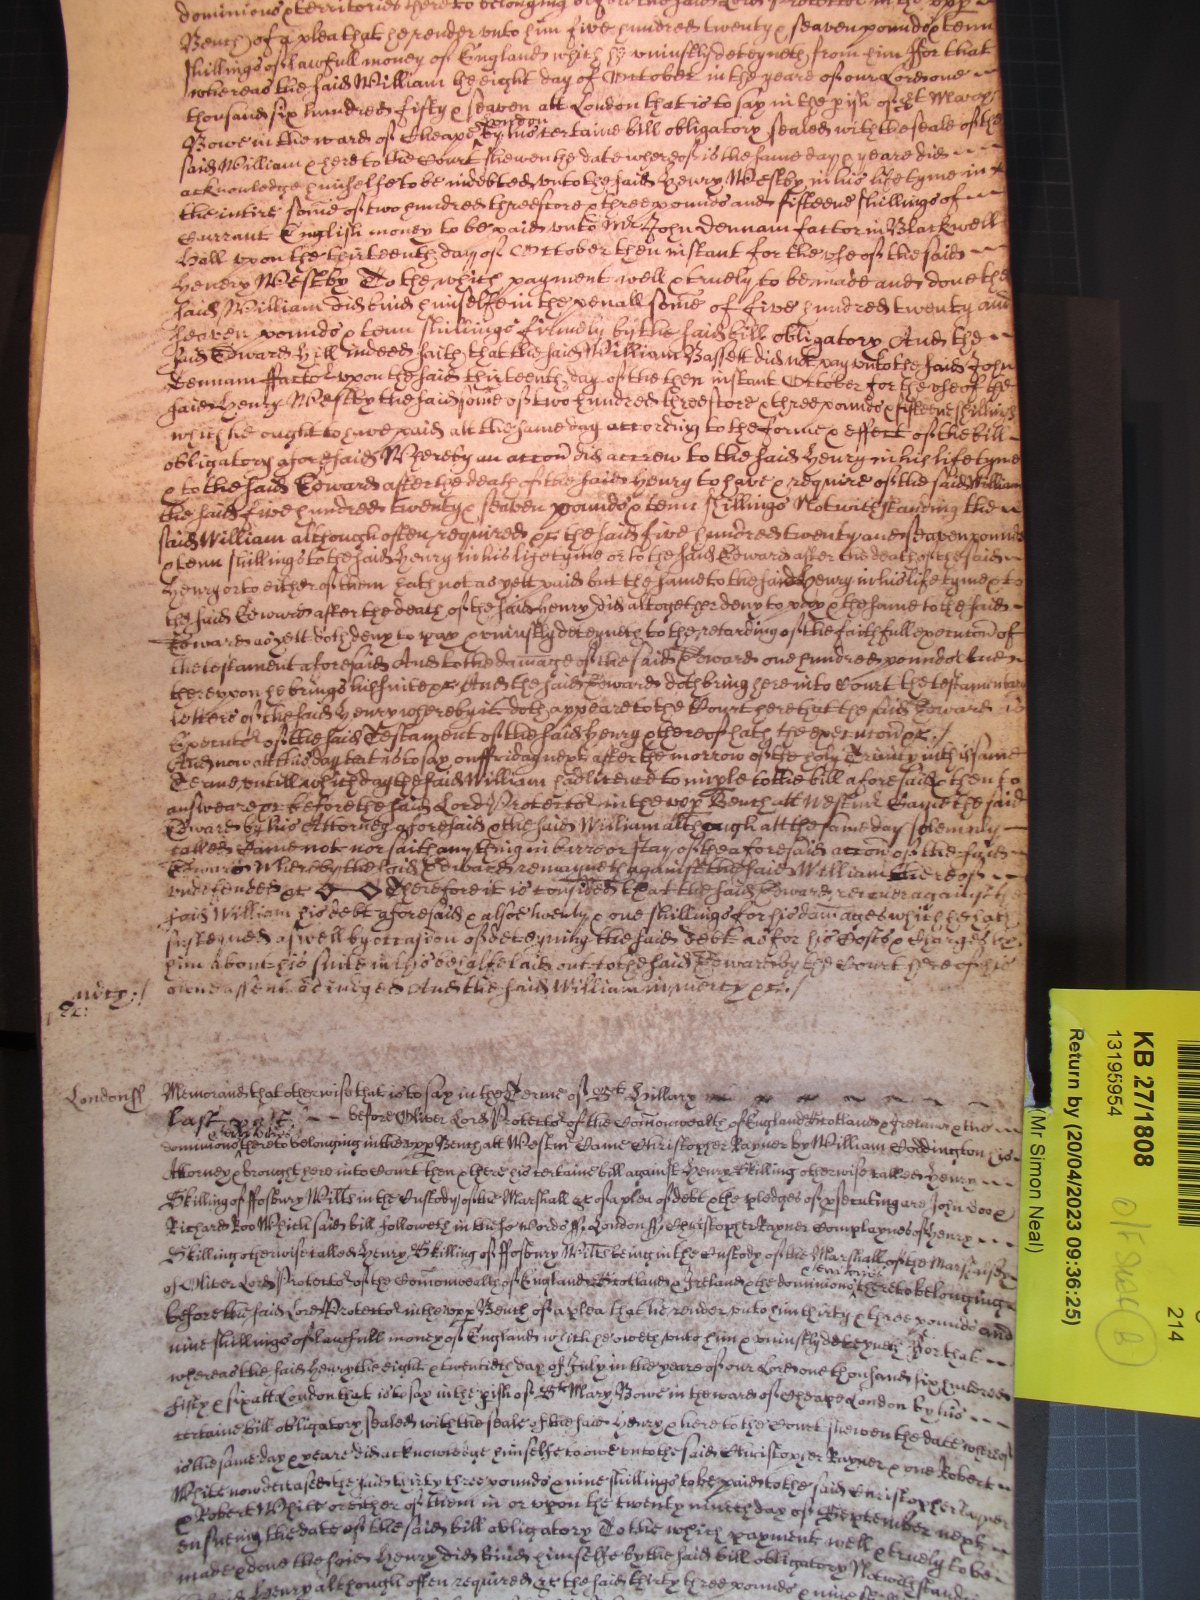 dominions & territories thereto belonging before the said Lord Protector in the upp
Bench of a plea that he render unto him five hundred twenty & seaven pounds & tenn
shillings of lawfull money of England which he uniustly deteyneth from him For that
whereas the said William the eight day of October in the yeare of our Lord one
thousand six hundred fifty & seaven att London that is to say in the pish of St Mary
Bowe in the ward of Cheape London by his certaine bill obligatory sealed with the seale of the
said William & here to the Court shewen the date whereof is the same day & yeare did
acknowledge himselfe to be indebted unto the said Henry Westby in his life tyme in
the intire some of two hundred threescore & three pounds and fifteene shillings of
currant English money to be paid unto Mr John Dennam factor in Blackwell
Hall upon the thirteenth day of October then instant for the use of the said
Henery Westby To the which payment well & truely to be made and done the
said William did bind himselfe in the penall some of five hundred twenty and
seaven pounds & tenn shillings firmely by the said bill obligatory And the
said Edward Hill indeed saith that the said William Bassett did not pay unto the said John
Dennam ffactor upon the said thirteenth day of the then instant October for the use of the
said Henry Westby the said some of two hundred threescore & three pounds & fifteene shillings
which he ought to have paid att the same day according to the forme & effect of the bill
obligatory aforesaid Whereby an accon did accrew to the said Henry in his life tyme
& to the said Edward after the death of the said Henry to have & require of the said William
the said five hundred twenty & seaven pounds & tenn shillings Notwithstanding the
said William although often required &c the said five hundred twenty and seaven pounds
& tenn shillings to the said Henry in his life tyme or to the said Edward after the death of the said
Henry or to either of them hath not as yett paid but the same to the said Henry in his life tyme & to
the said Edward after the death of the said Henry did altogether deny to pay & the same to the said
Edward as yett doth deny to pay & uniustly deteyneth to the retarding of the faithfull execucon of
the testament aforesaid And to the damage of the said Edward one hundred pounds And
thereupon he brings his suite &c And the said Edward doth bring here into Court the testamentary
letters of the said Henry whereby it doth appeare to the Court here that the said Edward is
Executor of the said Testament of the said Henry & thereof hath the execucon &c /
And now att this day that is to say on ffriday next after the morrow of the holy Trinity in this same
Terme untill which day the said William had licence to imple to the bill aforesaid & then to
answeare &c before the said Lord Protector in the upp Bench att Westmr Came the said
Edward by his Attorney aforesaid & the said William although att the same day solemnly
called Came not nor saith any thing in barre or stay of the aforesaid accon of the said
Edward Whereby the said Edward remayneth against the said William thereof
undefended &c Therefore it is considered that the said Edward recover against the
said William his debt aforesaid & alsoe twenty & one shillings for his damages which he hath
susteyned aswell by occasion of deteyning the said debt as for his Costs & Charges by
him about his suite in this behalfe laid out to the said Edward by the Court here of his
owne assent adiudged And the said William in mercy &c /
mercy /
&c:
London ss Memorand that otherwise that is to say in the Terme of St Hillary
last past before Oliver Lord Protector of the Comonwealth of England Scotland & Ireland & the
dominions & territories thereto belonging in the upp Bench att Westmr Came Christopher Rayner by William Coddington his
Attorney & brought here into Court then & there his certaine bill against Henry Skilling otherwise called Henry
Skilling of ffosbury Wilts in the Custody of the Marshall &c of a plea of debt & the pledges of prosecuting are John Doo &
Richard Roo Which said bill followeth in these words ss London ss Christopher Rayner Complaynes of Henry
Skilling otherwise called Henry Skilling of ffosbury Wilts being in the Custody of the Marshall of the Marshalsea
of Oliver Lord Protector of the Comonwealth of England Scotland & Ireland & the dominions & territories thereto belonging
before the said Lord Protector in the upp Bench of a plea that he render unto him thirty & three pounds and
nine shillings of lawfull money of England which he oweth unto him & uniustly deteyneth For that
whereas the said Henry the eight & twentieth day of July in the yeare of our Lord one thousand six hundred
fifty & six att London that is to say in the pish of St Mary Bowe in the ward of Cheape London by his
certaine bill obligatory sealed with the seale of the said Henry & here to the Court shewen the date whereof
is the same day & yeare did acknowledge himselfe to owe unto the said Christopher Rayner & one Robert
White now deceased the said thirty three pounds & nine shillings to be paid to the said Christopher Rayner
& Robert White or either of them in or upon the twenty nineth day of September next
ensueing the date of the said bill obligatory To the which payment well & truely to be
made & done the said Henry did bind himselfe by the said bill obligatory Notwithstanding
Henry although often required &c the said thirty three pounds & nine
KB 27/1808
13195954
Return by (20/04/2023 09:36:25)
(Mr Simon Neal)
214